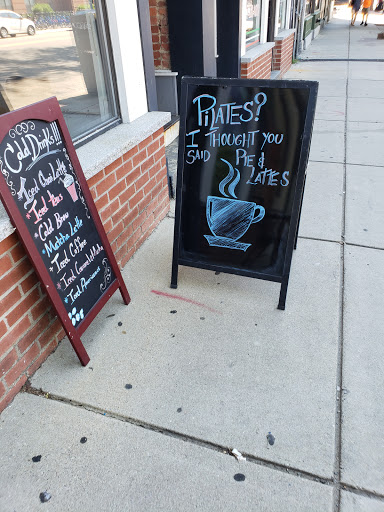 Cold Drinks!!!
Iced Chai Latte
Iced Teas
Cold Brew
Matcha Latte
Iced Coffee
Iced Caramel Macha
Iced Americano
PILATES?
I THOUGHT YOU
SAID PIE &
LATTES